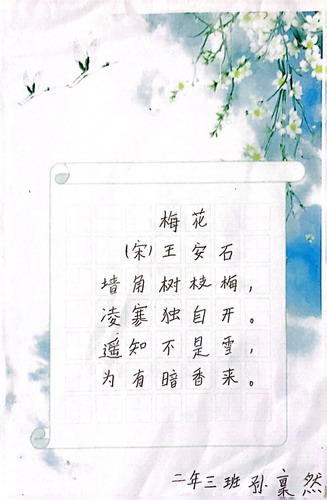 梅花
(宋)王安石
墙角树枝梅,
凌寒独自开。
遥知不是雪,
为有暗香来。
二年三班孙稟然